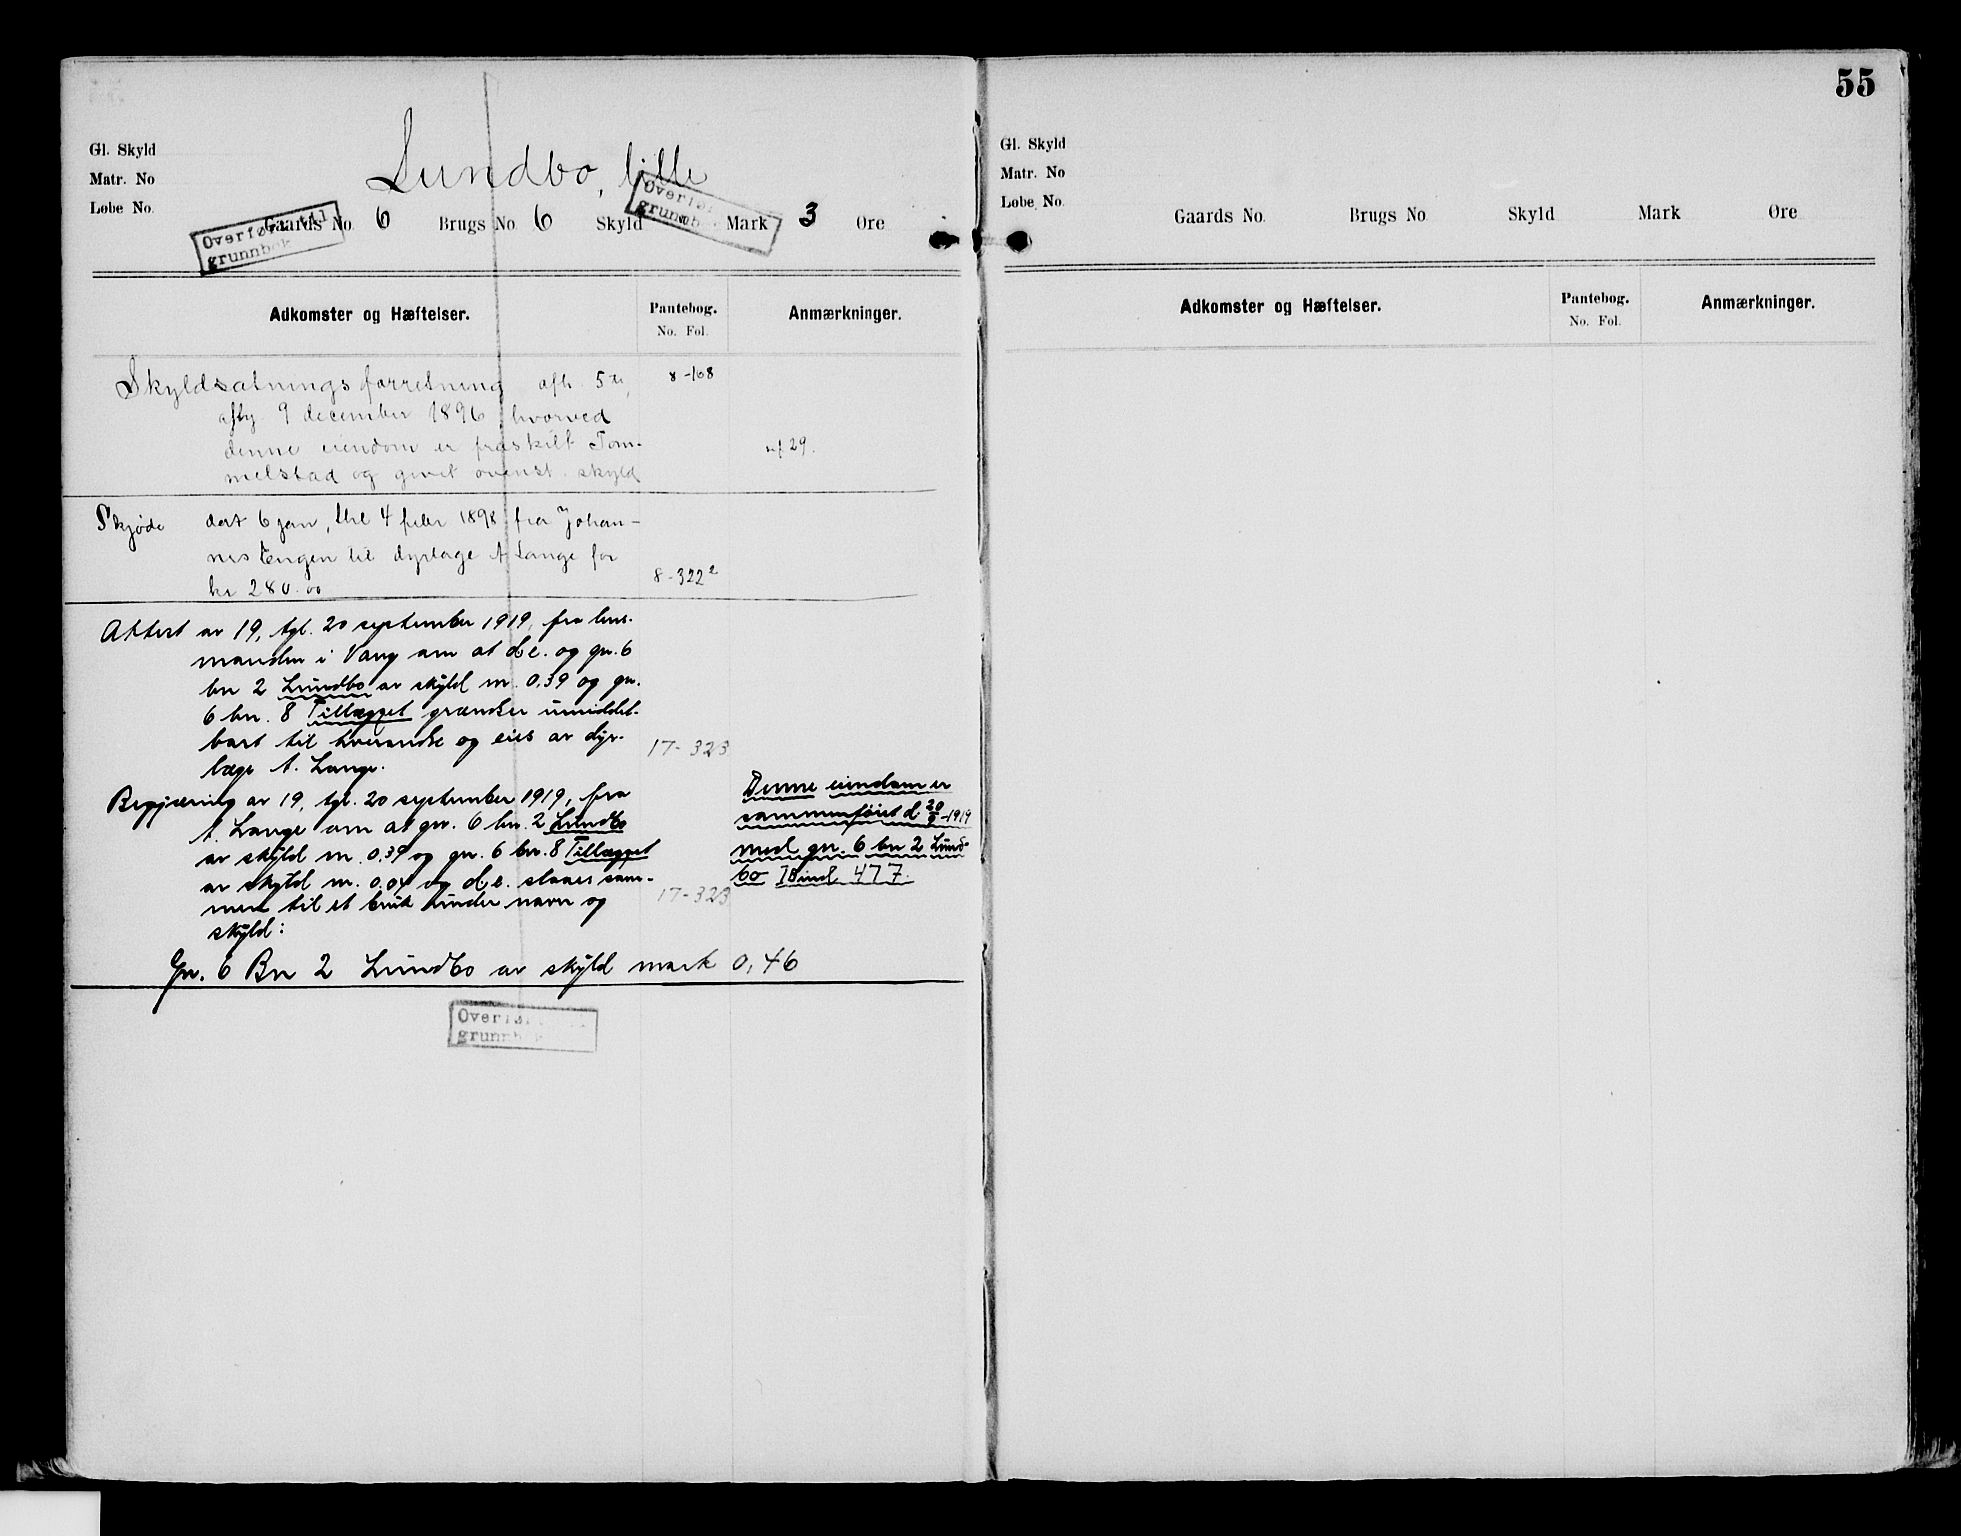 Gl. Skyld
Matr. No
Løbe No.
Lundbo, lille
Gaards No. 6 Brugs No. 6 Skyld Mark 3 Øre
Overført til
grunnbok
Overfør
grunnb
Adkomster og Hæftelser. Pantebog. Anmærkninger.
No. Fol.
Skyldsætningsforretning afh. 5te, 8-108
afly 9 december 1896, hvorved
denne eiendom er fraskilt Tom- 29.
melstad og givet ovenst. skyld
Skjøde dat 6 jan, thl 4 febr 1898 fra Johan-
nes Engen til dyrlæge A Lange for
kr 280.00 8-322²
Attest av 19, tgl. 20 september 1919, fra lens-
manden i Vang om at d.e. og gn. 6
bn 2 Lundbo av skyld m. 0.39 og gn.
6 bn. 8 Tillægget grændser umiddel-
bart til hverandre og eies av dyr- 17-323
læge A. Lange.
Begjæring av 19, tgl. 20 september 1919, fra
A. Lange om at gn. 6 bn. 2 Lundbo
av skyld m. 0.39 og gn. 6 bn. 8 Tillægget
av skyld m. 0.04 og d.e. slaaes sam- 17-323
men til et bruk under navn og
skyld:
Gn. 6 Bn 2 Lundbo av skyld mark 0,46
Denne eiendom er
sammenføiet d 20/9-1919
med gn. 6 bn 2 Lund-
bo I Bind 477.
Overfør
grunnb k
55
Gl. Skyld
Matr. No
Løbe No.
Gaards No. Brugs No Skyld Mark Øre
Adkomster og Hæftelser. Pantebog. Anmærkninger.
No. Fol.